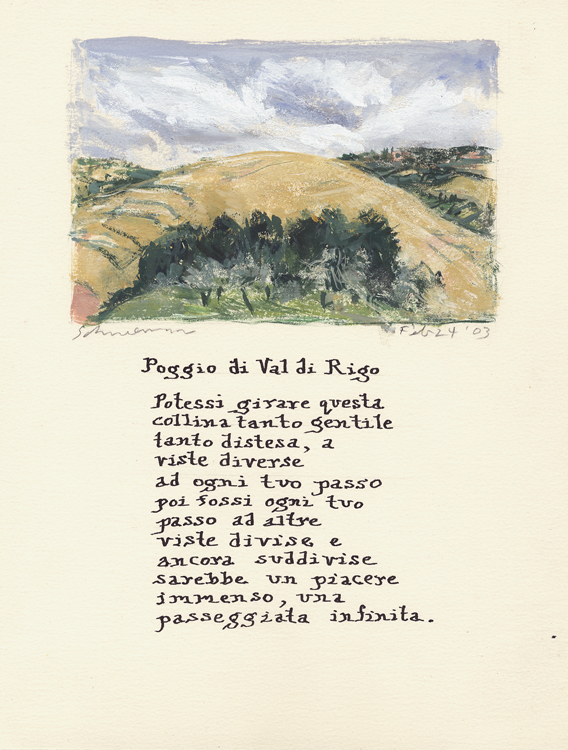 Schneeman
Feb 24 '03
Poggio di Val di Rigo
Potessi girare questa
collina tanto gentile
tanto distesa, a
viste diverse
ad ogni tuo passo
poi fossi ogni tuo
passo ad altre
viste divise e
ancora suddivise
sarebbe un piacere
immenso, una
passeggiata infinita.